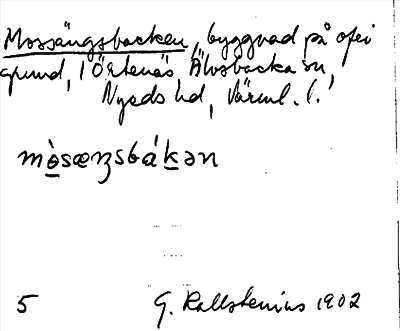 Mossängsbacken, byggnad på ofri
grund, i Örtenäs, Älvsbacka sn,
Nyeds hd, Värml. l.
mò̲sæŋsbák̲ən
5 G. Kallstenius 1902